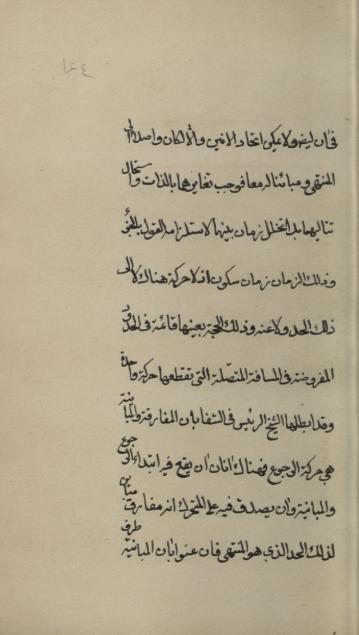 فى ان ليض ولا يمكن اتحاد الانين والا لكان واصلا الى
المنتهى ومباينا له معا فوجب تغايرهما بالذات واستحال
تتاليهما بلا تخلل زمان بينهما لاستلزامه القول بالجزؤ
وذلك الزمان زمان سكون اذ لا حركة هناك لا الى
ذلك الحد ولا عنه وذلك الحجة بعينها قائمة فى الحدود
المفروضة فى المسافة المتصلة التى تقطعها حركة واحدة
وقد ابطلها الشيخ الرئيس فى الشفا بان المفارقة والمباينة
هى حركة الرجوع فهناك انان ان يقع فيه ابتداء الرجوع
والمباينة وان يصدق فيه على المتحرك انه مفارق مباين
لذلك الحد الذى هو المنتهى فان عنوا بان المباينة طرف